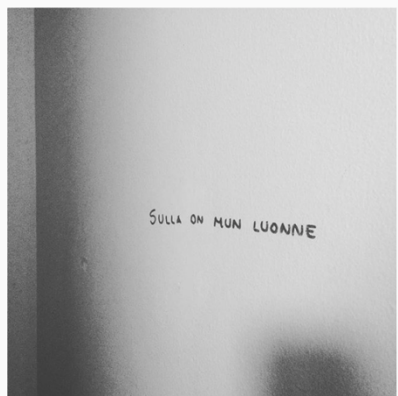 SULLA ON MUN LUONNE